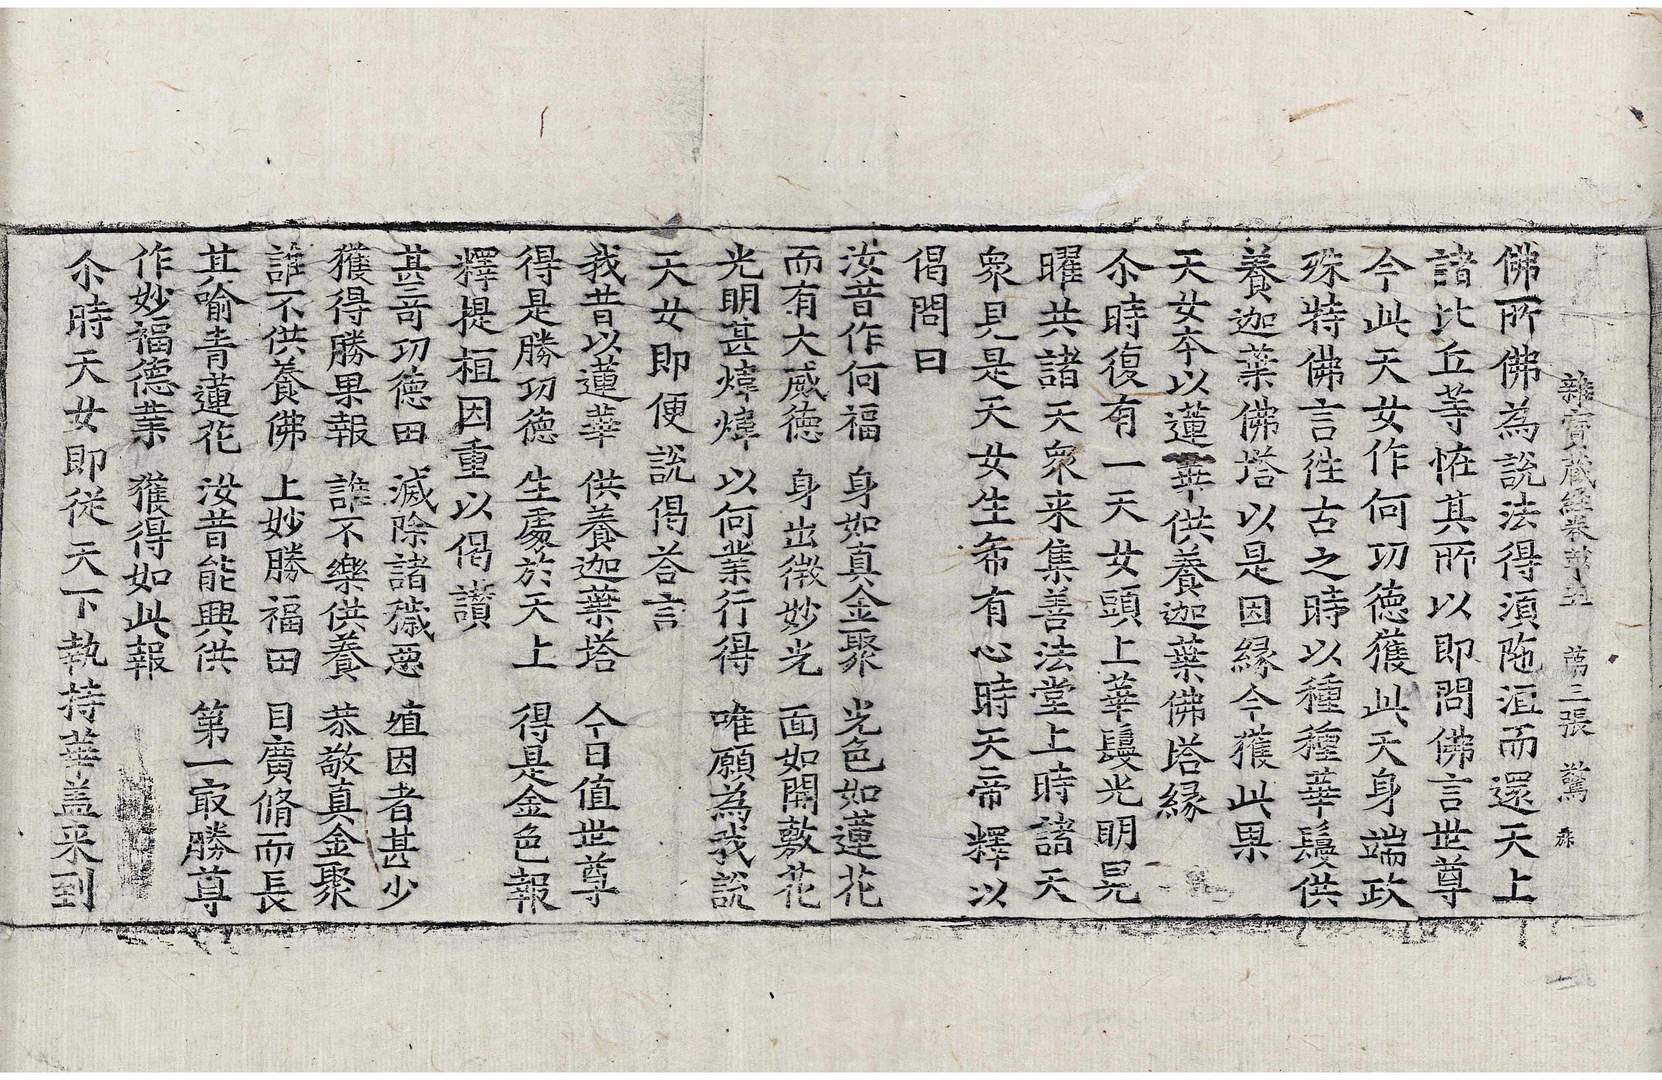 雜寶藏經卷第五 第三張 驚
佛所佛為說法得湏陁洹而還天上
諸比丘等恠其所以即問佛言世尊
今此天女作何功徳獲此天身端政
殊特佛言徃古之時以種種華鬘供
養迦葉佛塔以是因緣今獲此果
天女本以蓮華供養迦葉佛塔緣
尒時復有一天女頭上華鬘光明晃
曜共諸天衆来集善法堂上時諸天
衆見是天女生希有心時天帝釋以
偈問曰
汝昔作何福 身如真金聚 光色如蓮花
而有大威徳 身出微妙光 面如開敷花
光明甚煒煒 以何業行得 唯願為我說
天女即便說偈荅言
我昔以蓮華 供養迦葉塔 今日值世尊
得是勝功德 生處於天上 得是金色報
釋提桓因重以偈讃
甚竒功徳田 滅除諸穢惡 殖因者甚少
獲得勝果報 誰不樂供養 恭敬真金聚
誰不供養佛 上妙勝福田 目廣脩而長
其喻青蓮花 汝昔能興供 第一㝡勝尊
作妙福德業 獲得如此報
尒時天女即從天下執持華盖来到